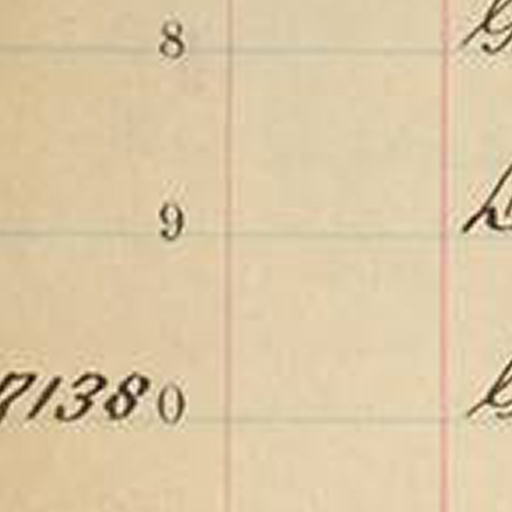 8
9
71380